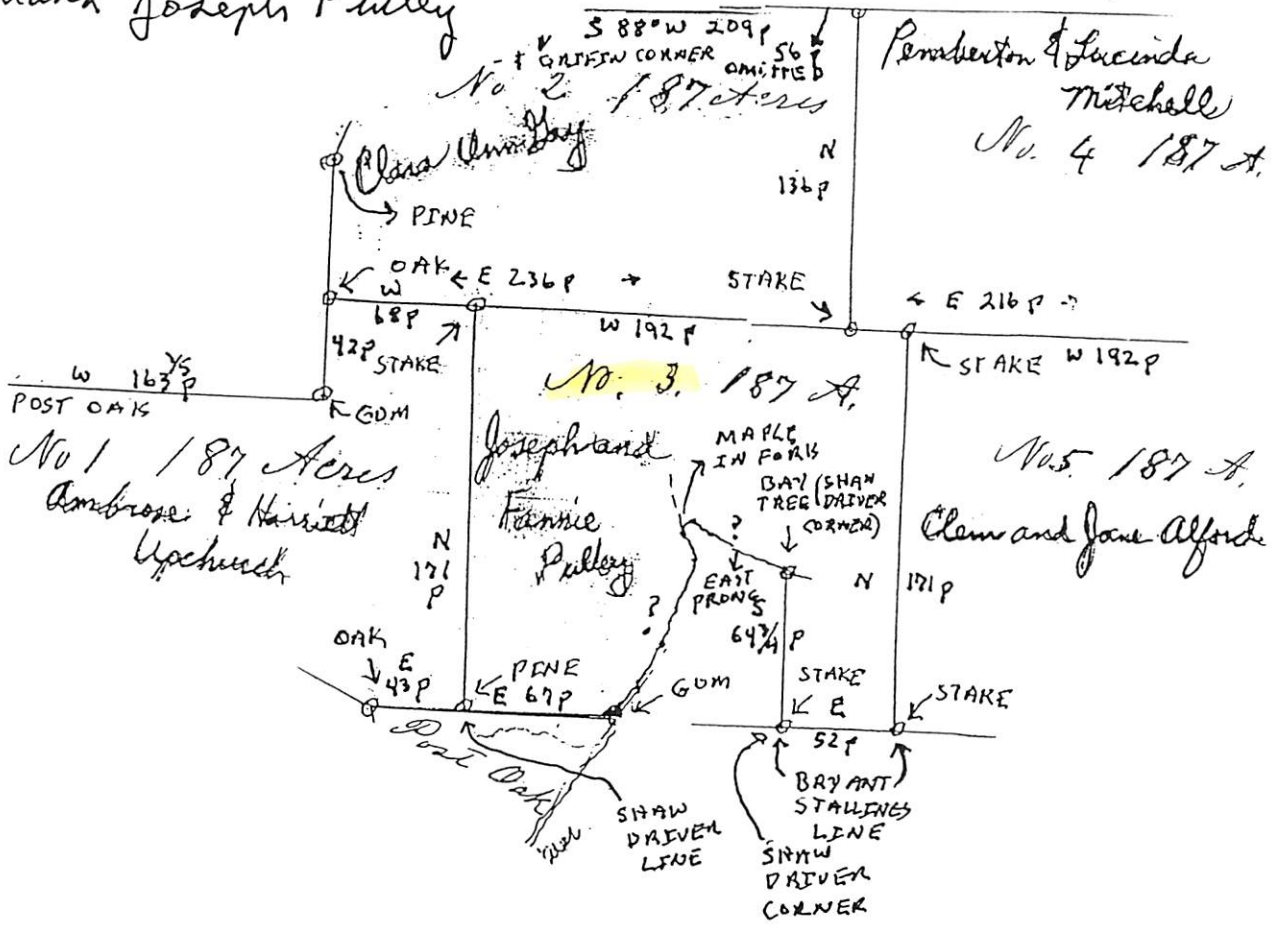 Joseph Pulley
S 88° W 209 P
GRIFFIN CORNER
56 P
OMITTED
No 2 187 Acres
Clara Ann Gay
Pemberton & Lucinda
Mitchell
No. 4 187 A.
N
136 P
PINE
OAK
E 236 P
STAKE
W
68 P
W 192 P
E 216 P
42 P
STAKE
STAKE
W 192 P
W 163 4/5 P
POST OAK
GUM
No. 3. 187 A.
No 1 187 Acres
Ambrose & Harriett
Upchurch
Joseph and
Fannie
Pulley
MAPLE
IN FORK
BAY
TREE
(SHAW
DRIVER
CORNER)
No. 5. 187 A.
Clem and Jane Alford
N
171
P
?
EAST
PRONG
S
64 3/4 P
N 171 P
?
OAK
E
43 P
PINE
E 67 P
GUM
STAKE
E
52 P
STAKE
Post Oak
SHAW
DRIVER
LINE
BRYANT
STALLINGS
LINE
SHAW
DRIVER
CORNER